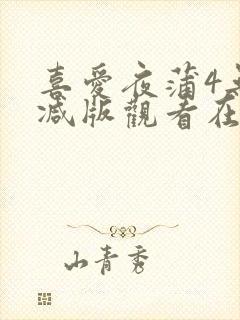 喜愛夜蒲4無
减版觀看在
山青秀